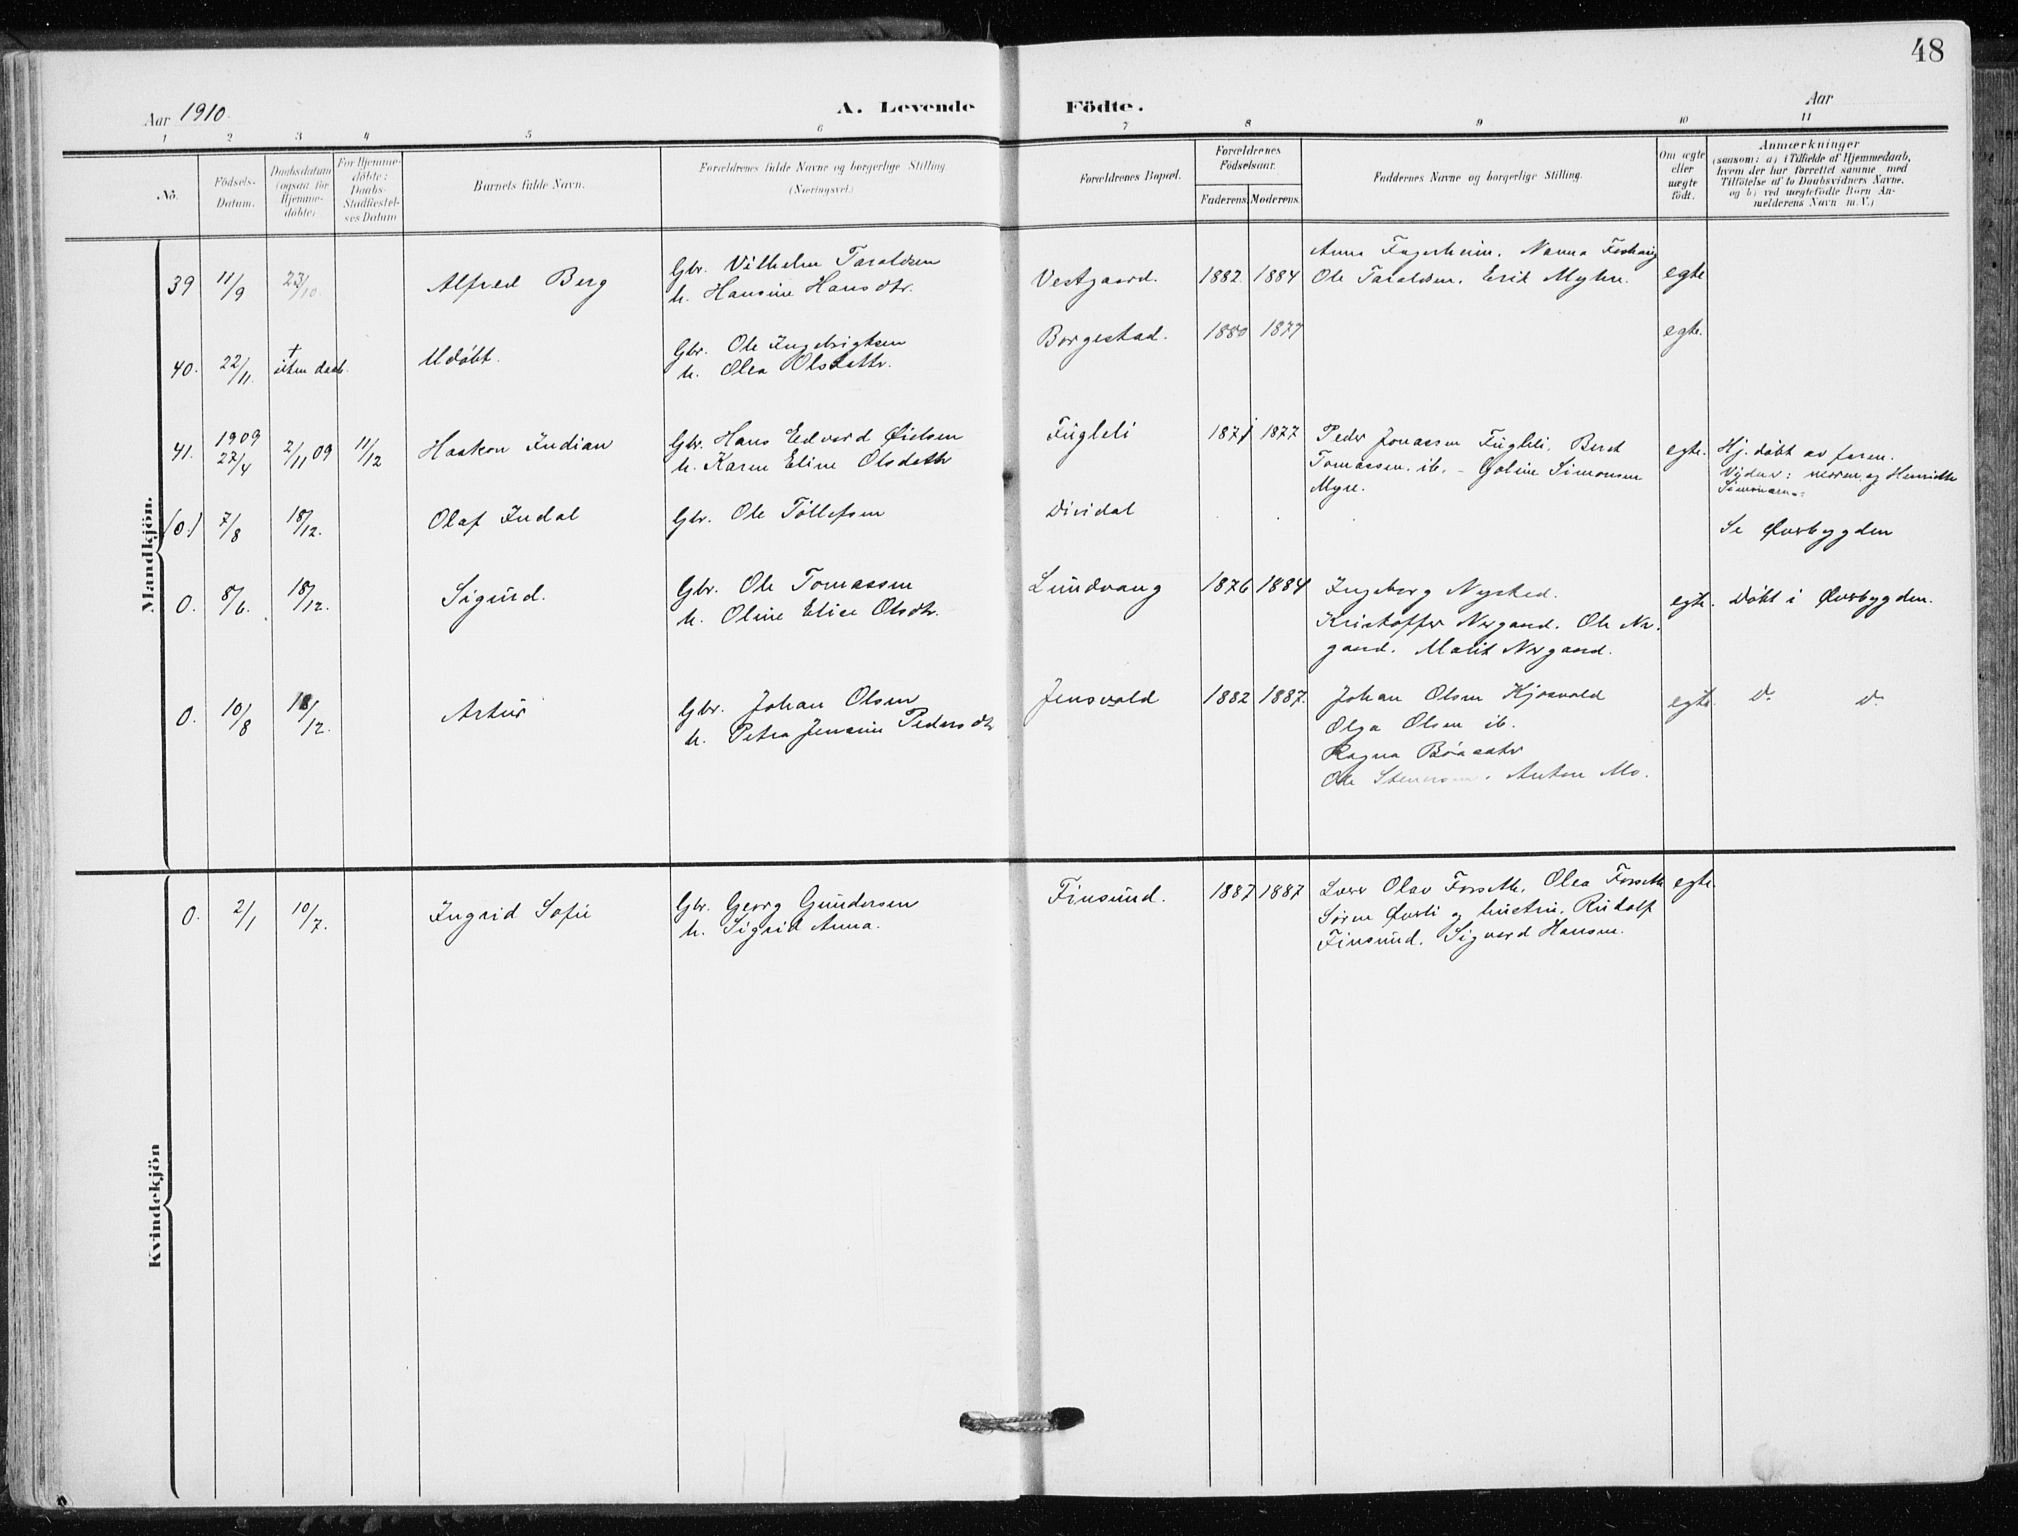 48
Aar 1910.
A. Levende Födte.
Aar
1 2 3 4 5 6 7 8 9 10 11
No.
Födsels-Datum.
Daabsdatum (ogsaa for Hjemmedöbte)
For Hjemmedöbte: Daabs-Stadfæstelses Datum
Barnets fulde Navn.
Forældrenes fulde Navne og borgerlige Stilling (Næringsvei.)
Forældrenes Bopæl.
Forældrenes Födselsaar.
Faderens. Moderens.
Faddernes Navne og borgerlige Stilling.
Om ægte eller uægte födt.
Anmærkninger
(saasom: a) i Tilfælde af Hjemmedaab,
hvem der har forrettet samme med
Tilföielse af to Daabsvidners Navne,
og b) ved uegtefödte Börn An-
melderens Navn m. V.)
Mandkjön.
39 11/9 23/10. Alfred Berg
Gbr. Vilhelm Taraldsen
h. Hansine Hansdtr.
Vestgaard. 1882. 1884
Anna Fagerheim. Nanna
Ole Taraldsen. Erik Myhre. egte
40. 22/11. + uten daab. Udøbt.
Gbr. Ole Ingebrigtsen
h. Olea Olsdattr.
Borgestad. 1880 1877 egte.
41. 1909 27/4 2/11 09 11/12 Haakon Indian
Gbr. Hans Edvard Öielsen
h. Karen Eline Olsdattr
Fugleli 1871 1877
Peder Jonassen Fugleli. Beret
Tomassen. ib. - Goline Simonsen
Myre.
egte. Hj. døbt av faren.
Vidner: moren, og Henriette
Simonsen.
(0.) 7/8 18/12. Olaf Indal
Gbr. Ole Tollefsen
Dividal
Se Øverbygden
0. 8/6. 18/12. Sigurd.
Gbr. Ole Tomassen
h. Oline Elise Olsdtr.
Lundvang 1876 1884
Ingeborg Nysted.
Kristoffer Nergaard. Ole Ner
gaard. Marit Nergaard.
egte. Døbt i Øverbygden.
0. 10/8 18/12. Artur
Gbr. Johan Olsen
h. Petra Jensine Pedersdtr
Jensvold 1882 1887.
Johan Olsen Kjosvold
Olga Olsen ib.
Ragna
Ole Stenersen. Anton Mo.
egte. Do Do
Kvindekjön
0. 2/1 10/7. Ingrid Sofie
Gbr. Georg Gundersen
h. Sigrid Anna.
Finsund. 1887 1887
Lærer Olav Forseth. Olea Forseth
Søren Øverli og hustru. Rudolf
Finsund. Sigvard Hansen.
egte.